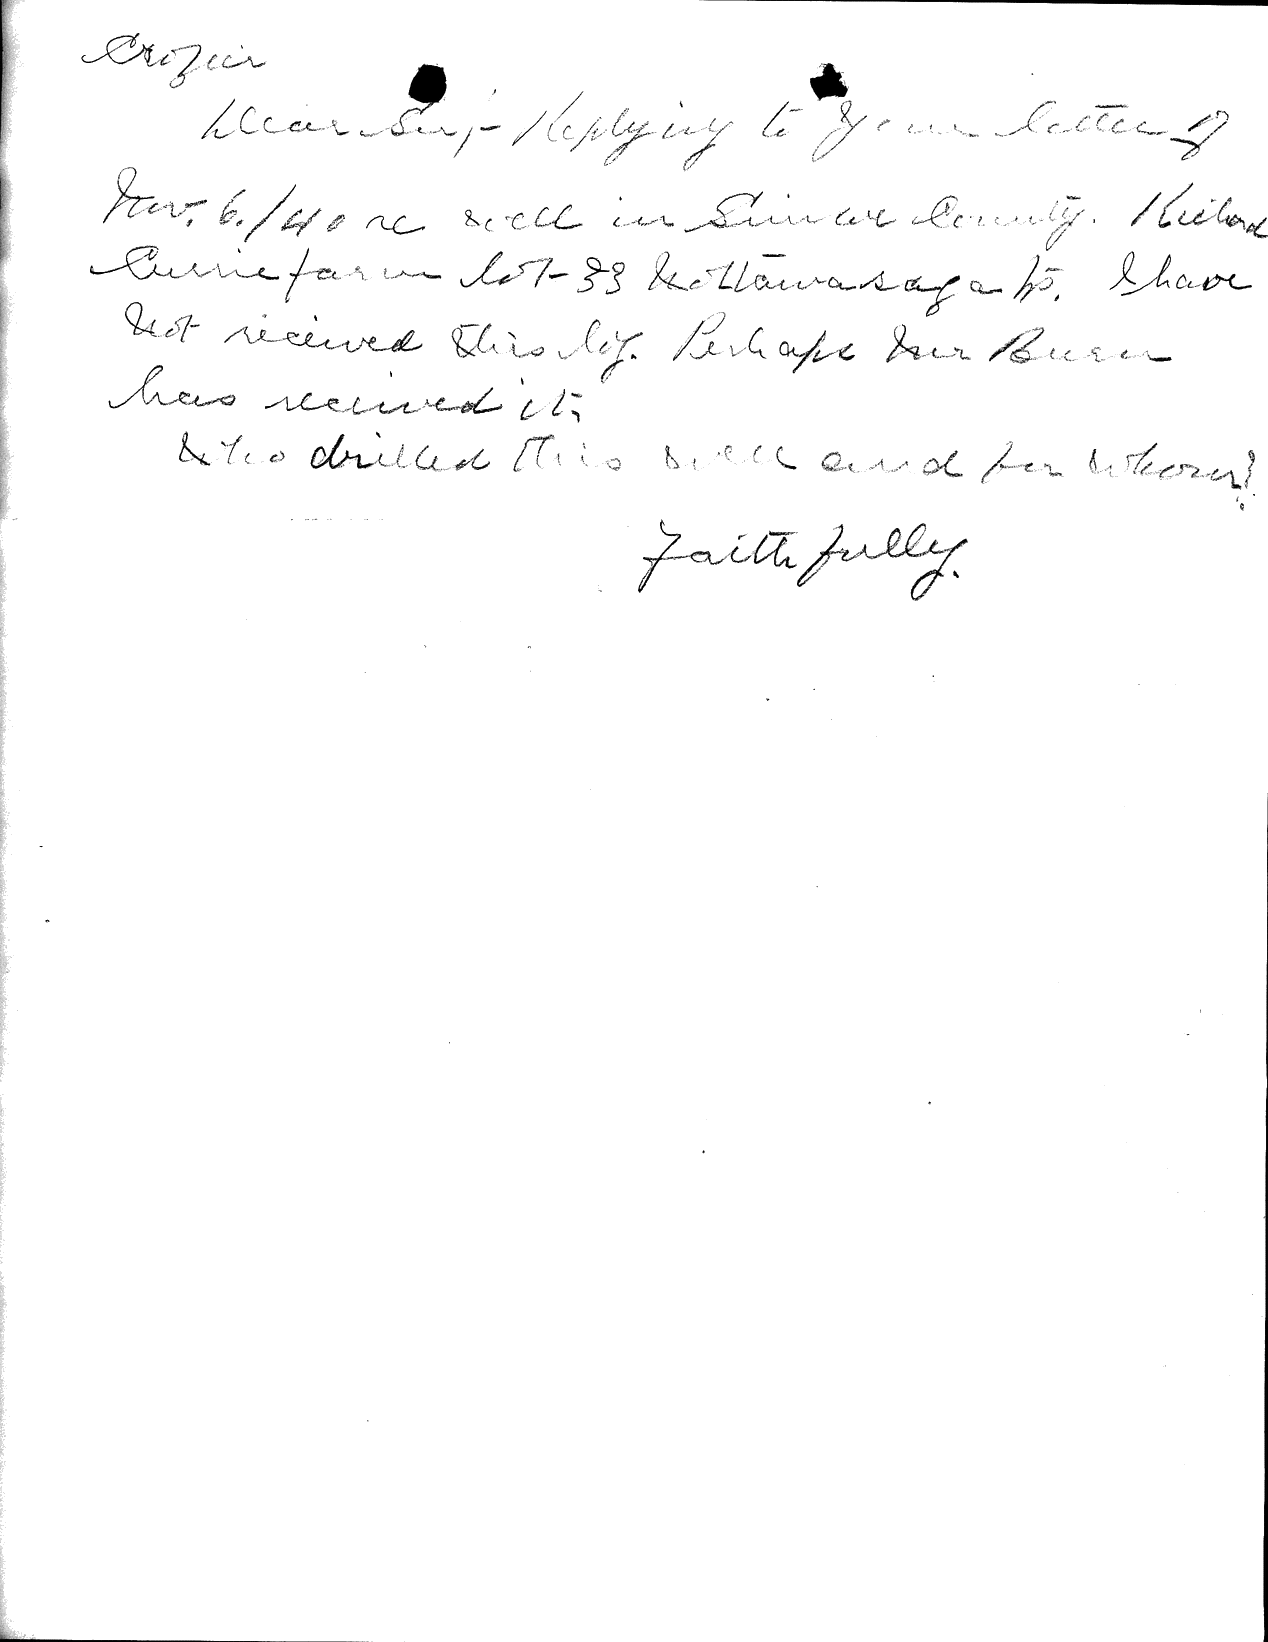 Crozier
Dear Sir,- Replying to your letter of
Nov. 6./40 re well in Simcoe County. Richard
Currie farm lot- 33 Nottawasaga Tp. I have
not received this log. Perhaps Mr
has received it,
Who drilled this well and for whom?
Faithfully.